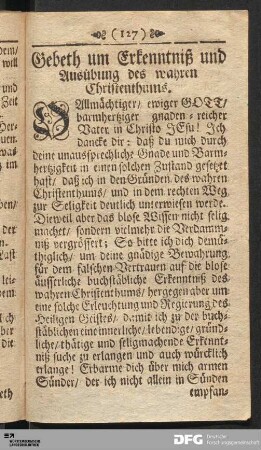 (127)
Gebeth um Erkenntniß und
Ausübung des wahren
Christenthums.
O Allmächtiger/ ewiger GOTT/
barmhertziger gnaden-reicher
Vater in Christo JEsu! Ich
dancke dir: daß du mich durch
deine unaussprechliche Gnade und Barm-
hertzigkeit in einen solchen Zustand gesetzet
hast/ daß ich in den Gründen des wahren
Christenthums/ und in dem rechten Weg
zur Seligkeit deutlich unterwiesen werde.
Dieweil aber das blose Wissen nicht selig
machet/ sondern vielmehr die Verdamm-
niß vergrössert; So bitte ich dich demü-
thiglich/ um deine gnädige Bewahrung
für dem falschen Vertrauen auf die blose
äusserliche buchstäbliche Erkenntniß des
wahren Christenthums/ hergegen aber um
eine solche Erleuchtung und Regierung des
Heiligen Geistes/ damit ich zu der buch-
stäblichen eine innerliche/ lebendige/ gründ-
liche/ thätige und seligmachende Erkennt-
niß suche zu erlangen und auch würcklich
erlange! Erbarme dich über mich armen
Sünder/ der ich nicht allein in Sünden
empfan-
DFG